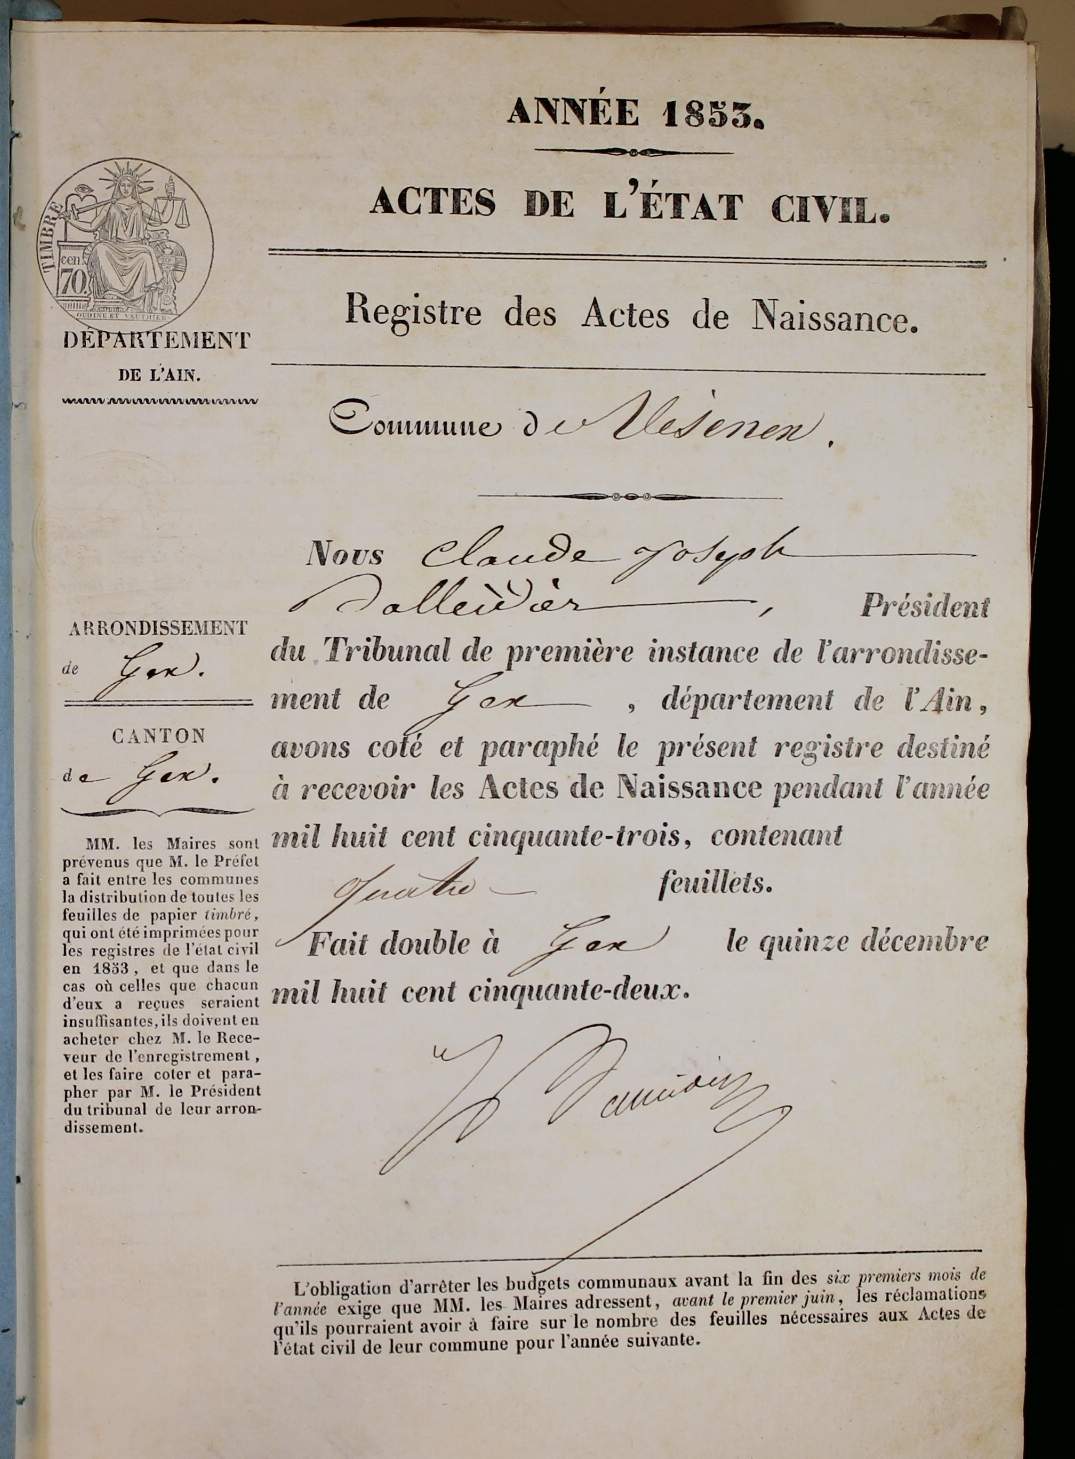 ANNÉE 1853.
ACTES DE L'ÉTAT CIVIL.
TIMBRE
cen.
70
OUDINE ET VAUTHIER
DÉPARTEMENT
DE L'AIN.
Registre des Actes de Naissance.
Commune de Vesenex.
ARRONDISSEMENT
de Gex.
CANTON
de Gex.
MM. les Maires sont
prévenus que M. le Préfet
a fait entre les communes
la distribution de toutes les
feuilles de papier timbré,
qui ont été imprimées pour
les registres de l'état civil
en 1853, et que dans le
cas où celles que chacun
d'eux a reçues seraient
insuffisantes, ils doivent en
acheter chez M. le Rece-
veur de l'enregistrement,
et les faire coter et para-
pher par M. le Président
du tribunal de leur arron-
dissement.
Nous Claude Joseph
, Président
du Tribunal de première instance de l'arrondisse-
ment de Gex, département de l'Ain,
avons coté et paraphé le présent registre destiné
à recevoir les Actes de Naissance pendant l'année
mil huit cent cinquante-trois, contenant
quatre feuillets.
Fait double à Gex le quinze décembre
mil huit cent cinquante-deux.
L'obligation d'arrêter les budgets communaux avant la fin des six premiers mois de
l'année exige que MM. les Maires adressent, avant le premier juin, les réclamations
qu'ils pourraient avoir à faire sur le nombre des feuilles nécessaires aux Actes de
l'état civil de leur commune pour l'année suivante.